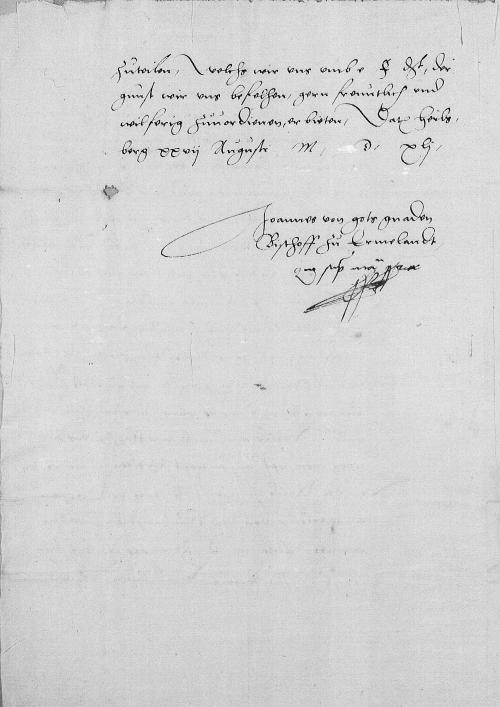 zuteilen, welchs wir uns umb e f dt, der
gunst wir uns befelhen, gern freuntlich und
wilferig zuuordienen, erbieten, Datum Heils¬
berg xxvij Augusti M d xlj
Joannes von gots gnaden
Bischoff zu Ermelandt
manu